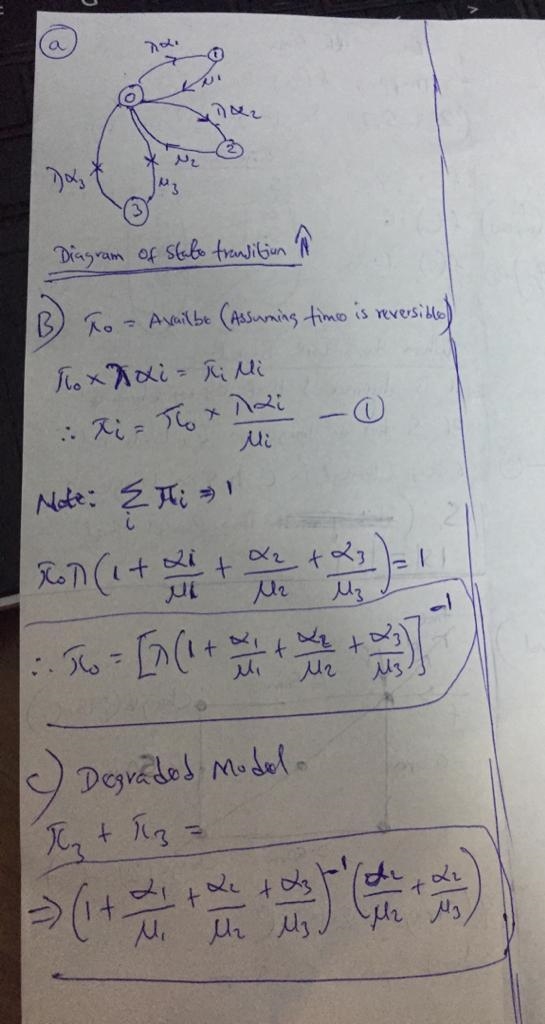 a
λα1
1
μ1
0
λα2
μ2
2
λα3
μ3
3
Diagram of State transition ⇑
B) π0 = Availbe (Assuming time is reversible)
π0 × λαi = πi μi
∴ πi = π0 × λαi/μi — ①
Note: Σi πi ⇒ 1
π0λ(1 + αi/μi + α2/μ2 + α3/μ3) = 1
∴ π0 = [λ(1 + α1/μ1 + α2/μ2 + α3/μ3)]⁻¹
C) Degraded Model
π3 + π3 =
⇒ (1 + α1/μ1 + α2/μ2 + α3/μ3)⁻¹ (α2/μ2 + α2/μ3)